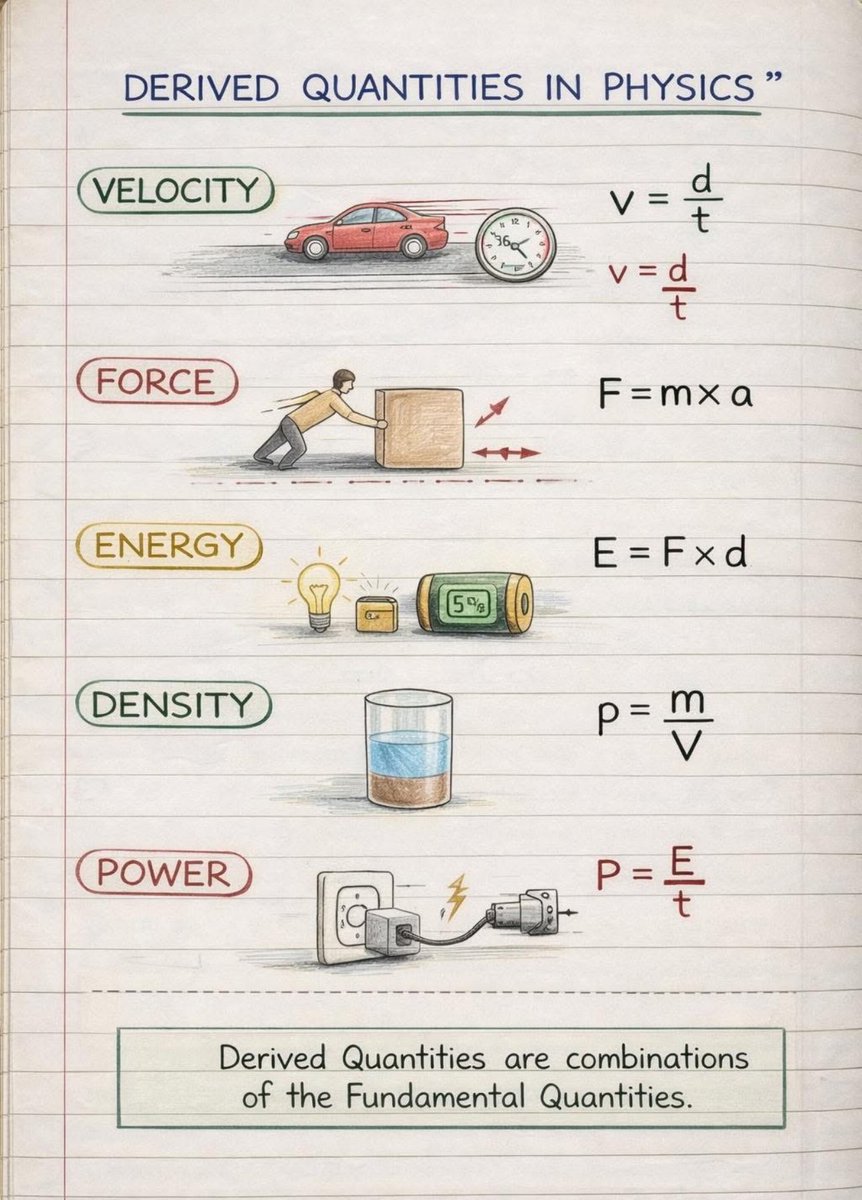 DERIVED QUANTITIES IN PHYSICS”
VELOCITY
v = d/t
v = d/t
FORCE
F = m × a
ENERGY
E = F × d
5
DENSITY
p = m/V
POWER
P = E/t
Derived Quantities are combinations
of the Fundamental Quantities.